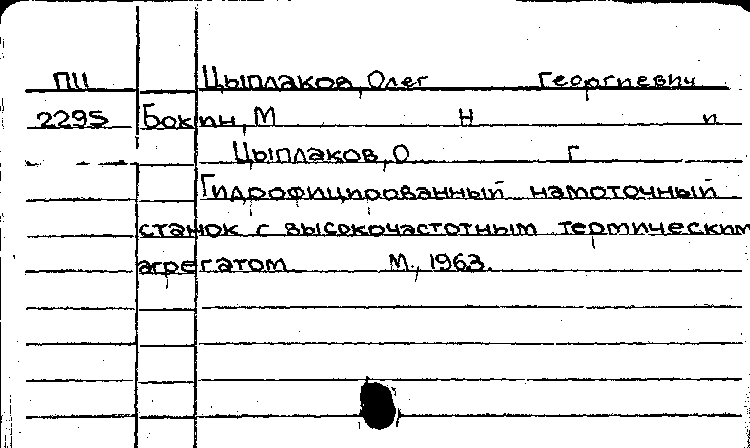 ПЦ Цыплаков, Олег Георгиевич
2295 Бокин, М Н и
Цыплаков, О Г
Гидрофицированный намоточный
станок с высокочастотным термическим
агрегатом М., 1963.